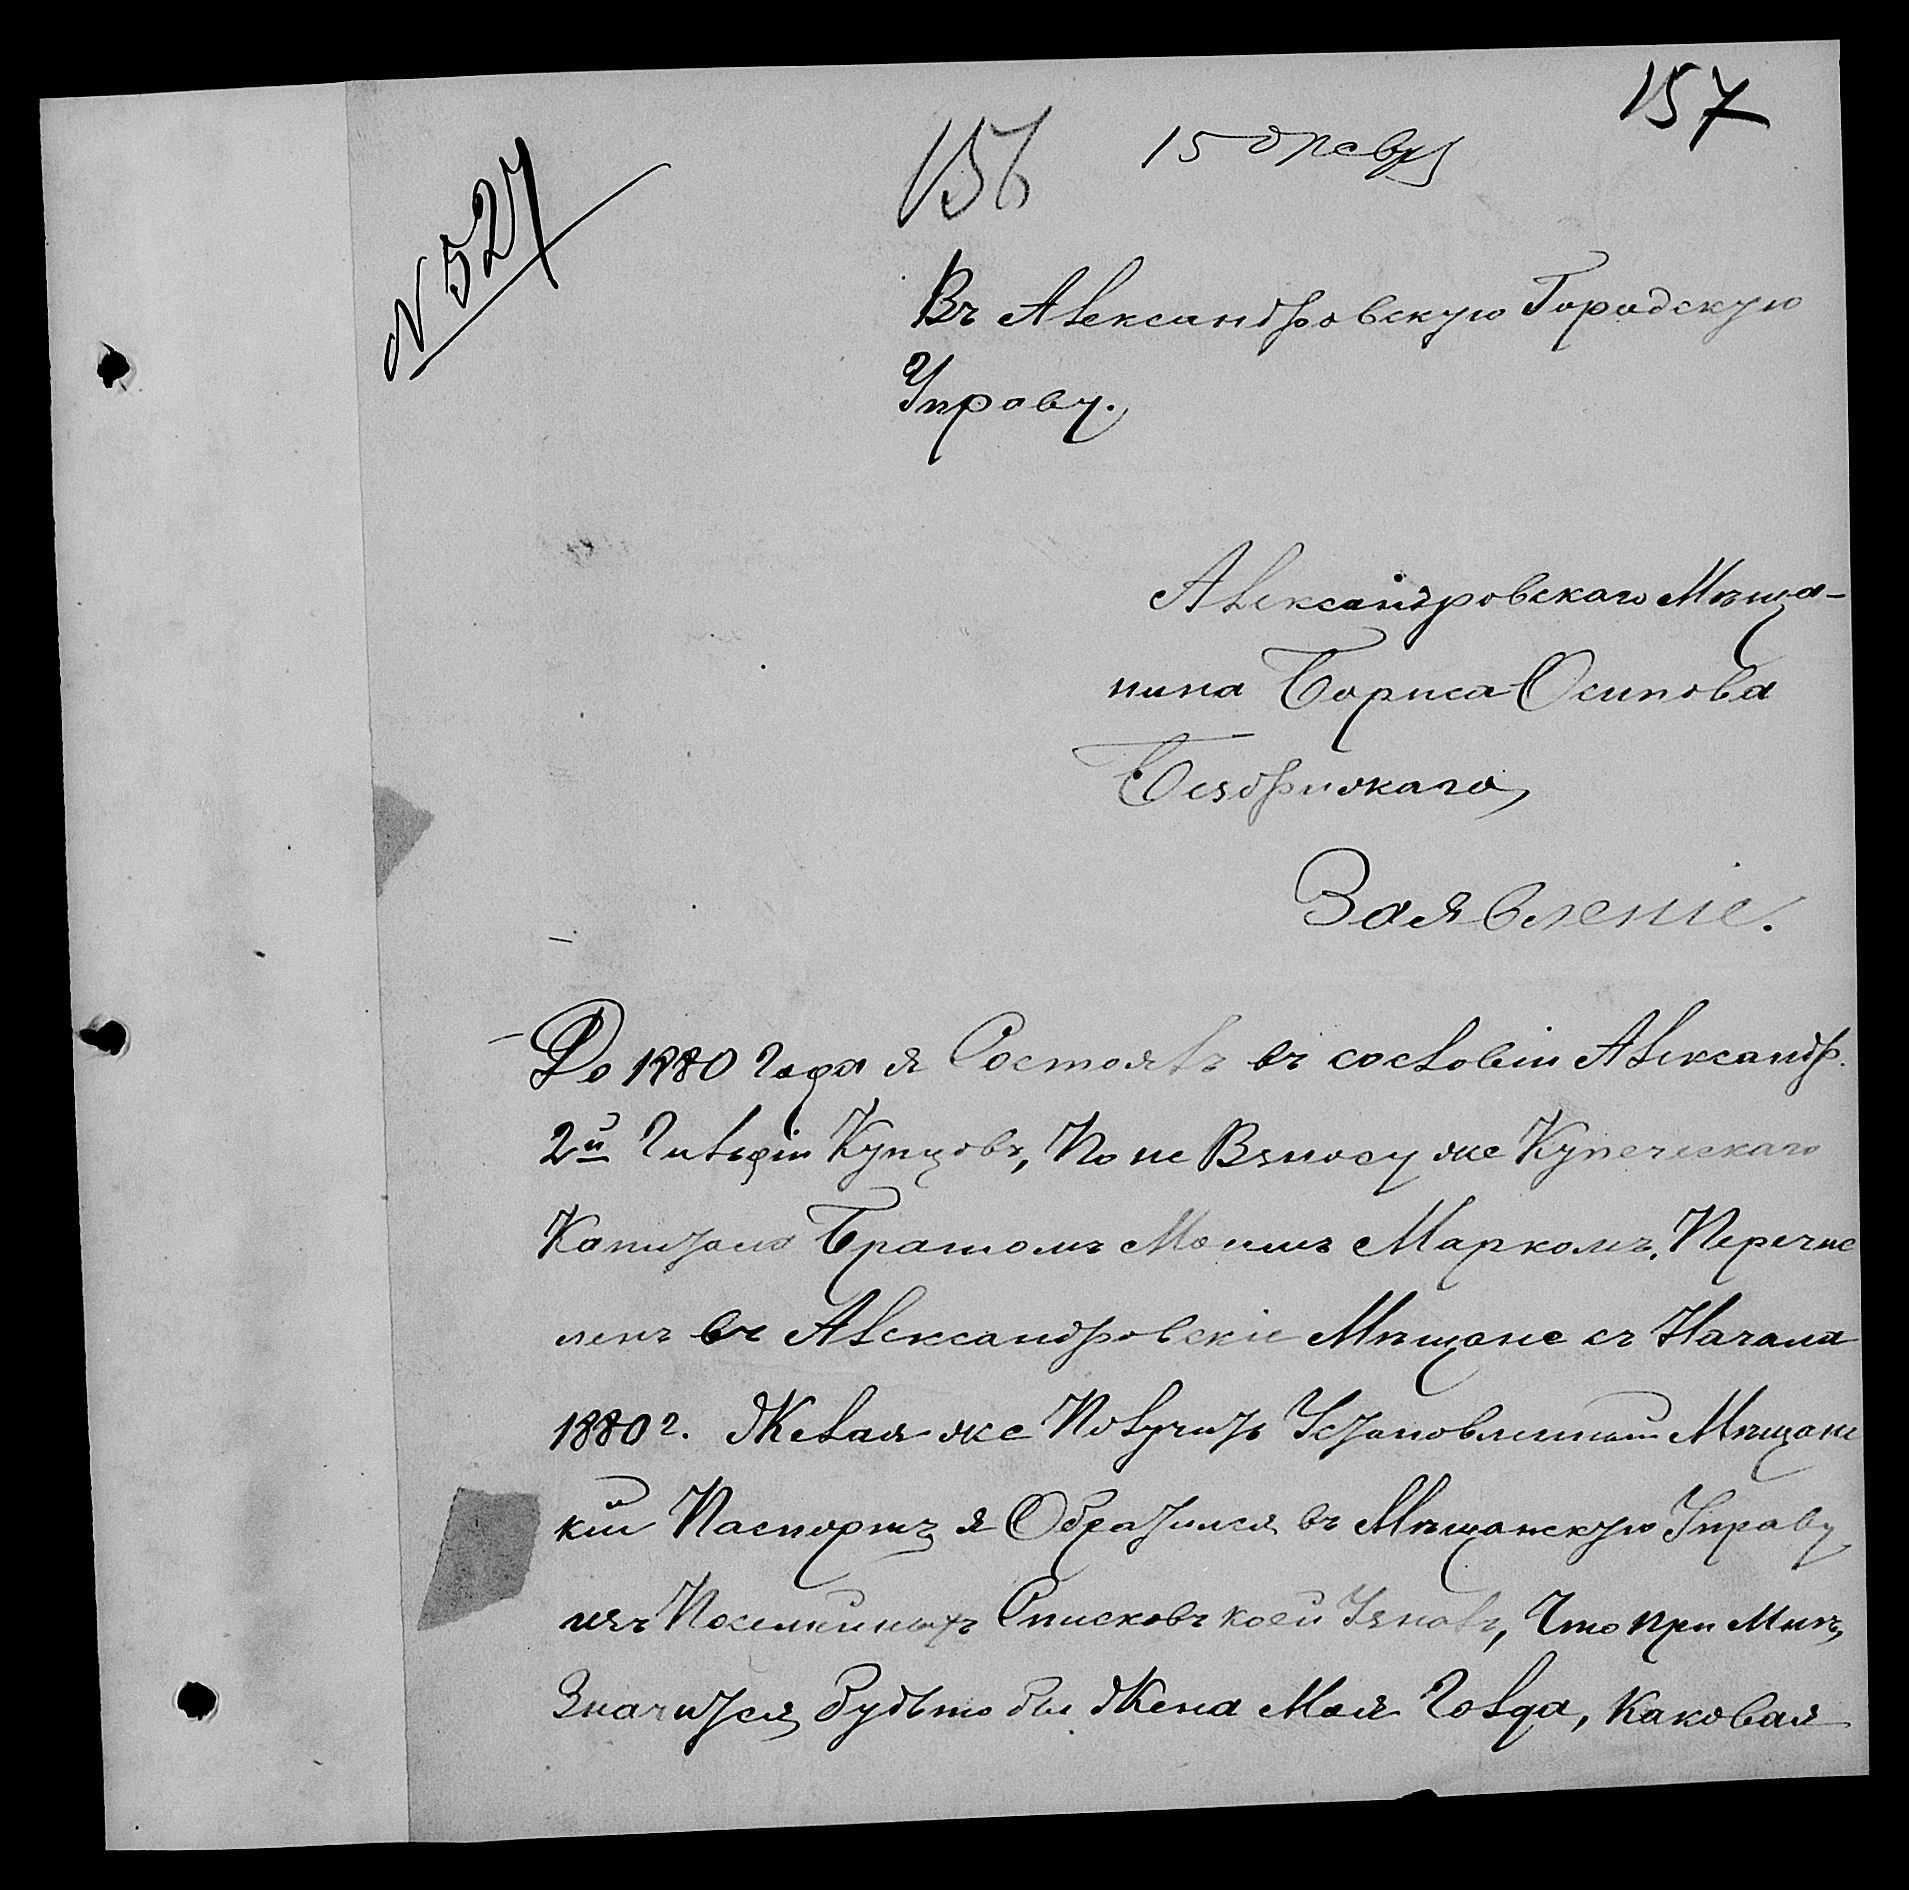 157
156
15 февр
N 527
Въ Александровскую Городскую
Управу.
Александровскаго Мѣща-
нина Бориса Осипова
Бездрижкаго,
Заявленіе.
До 1880 года я Состоялъ въ сословіи Александр.
2й Гильдіи Купцовъ, По не Взносу же Купеческаго
Капитала Братомъ Моимъ Маркомъ, Перечис
ленъ въ Александровскіе Мѣщане съ Начала
1880 г. Желая же Получить Установленный Мѣщанс
кій Паспортъ я Обратился въ Мѣщанскую Управу
изъ Посемейныхъ Списковъ коей Узналъ, Что при Мнѣ,
Значится будьто бы Жена Моя Голда, Каковая